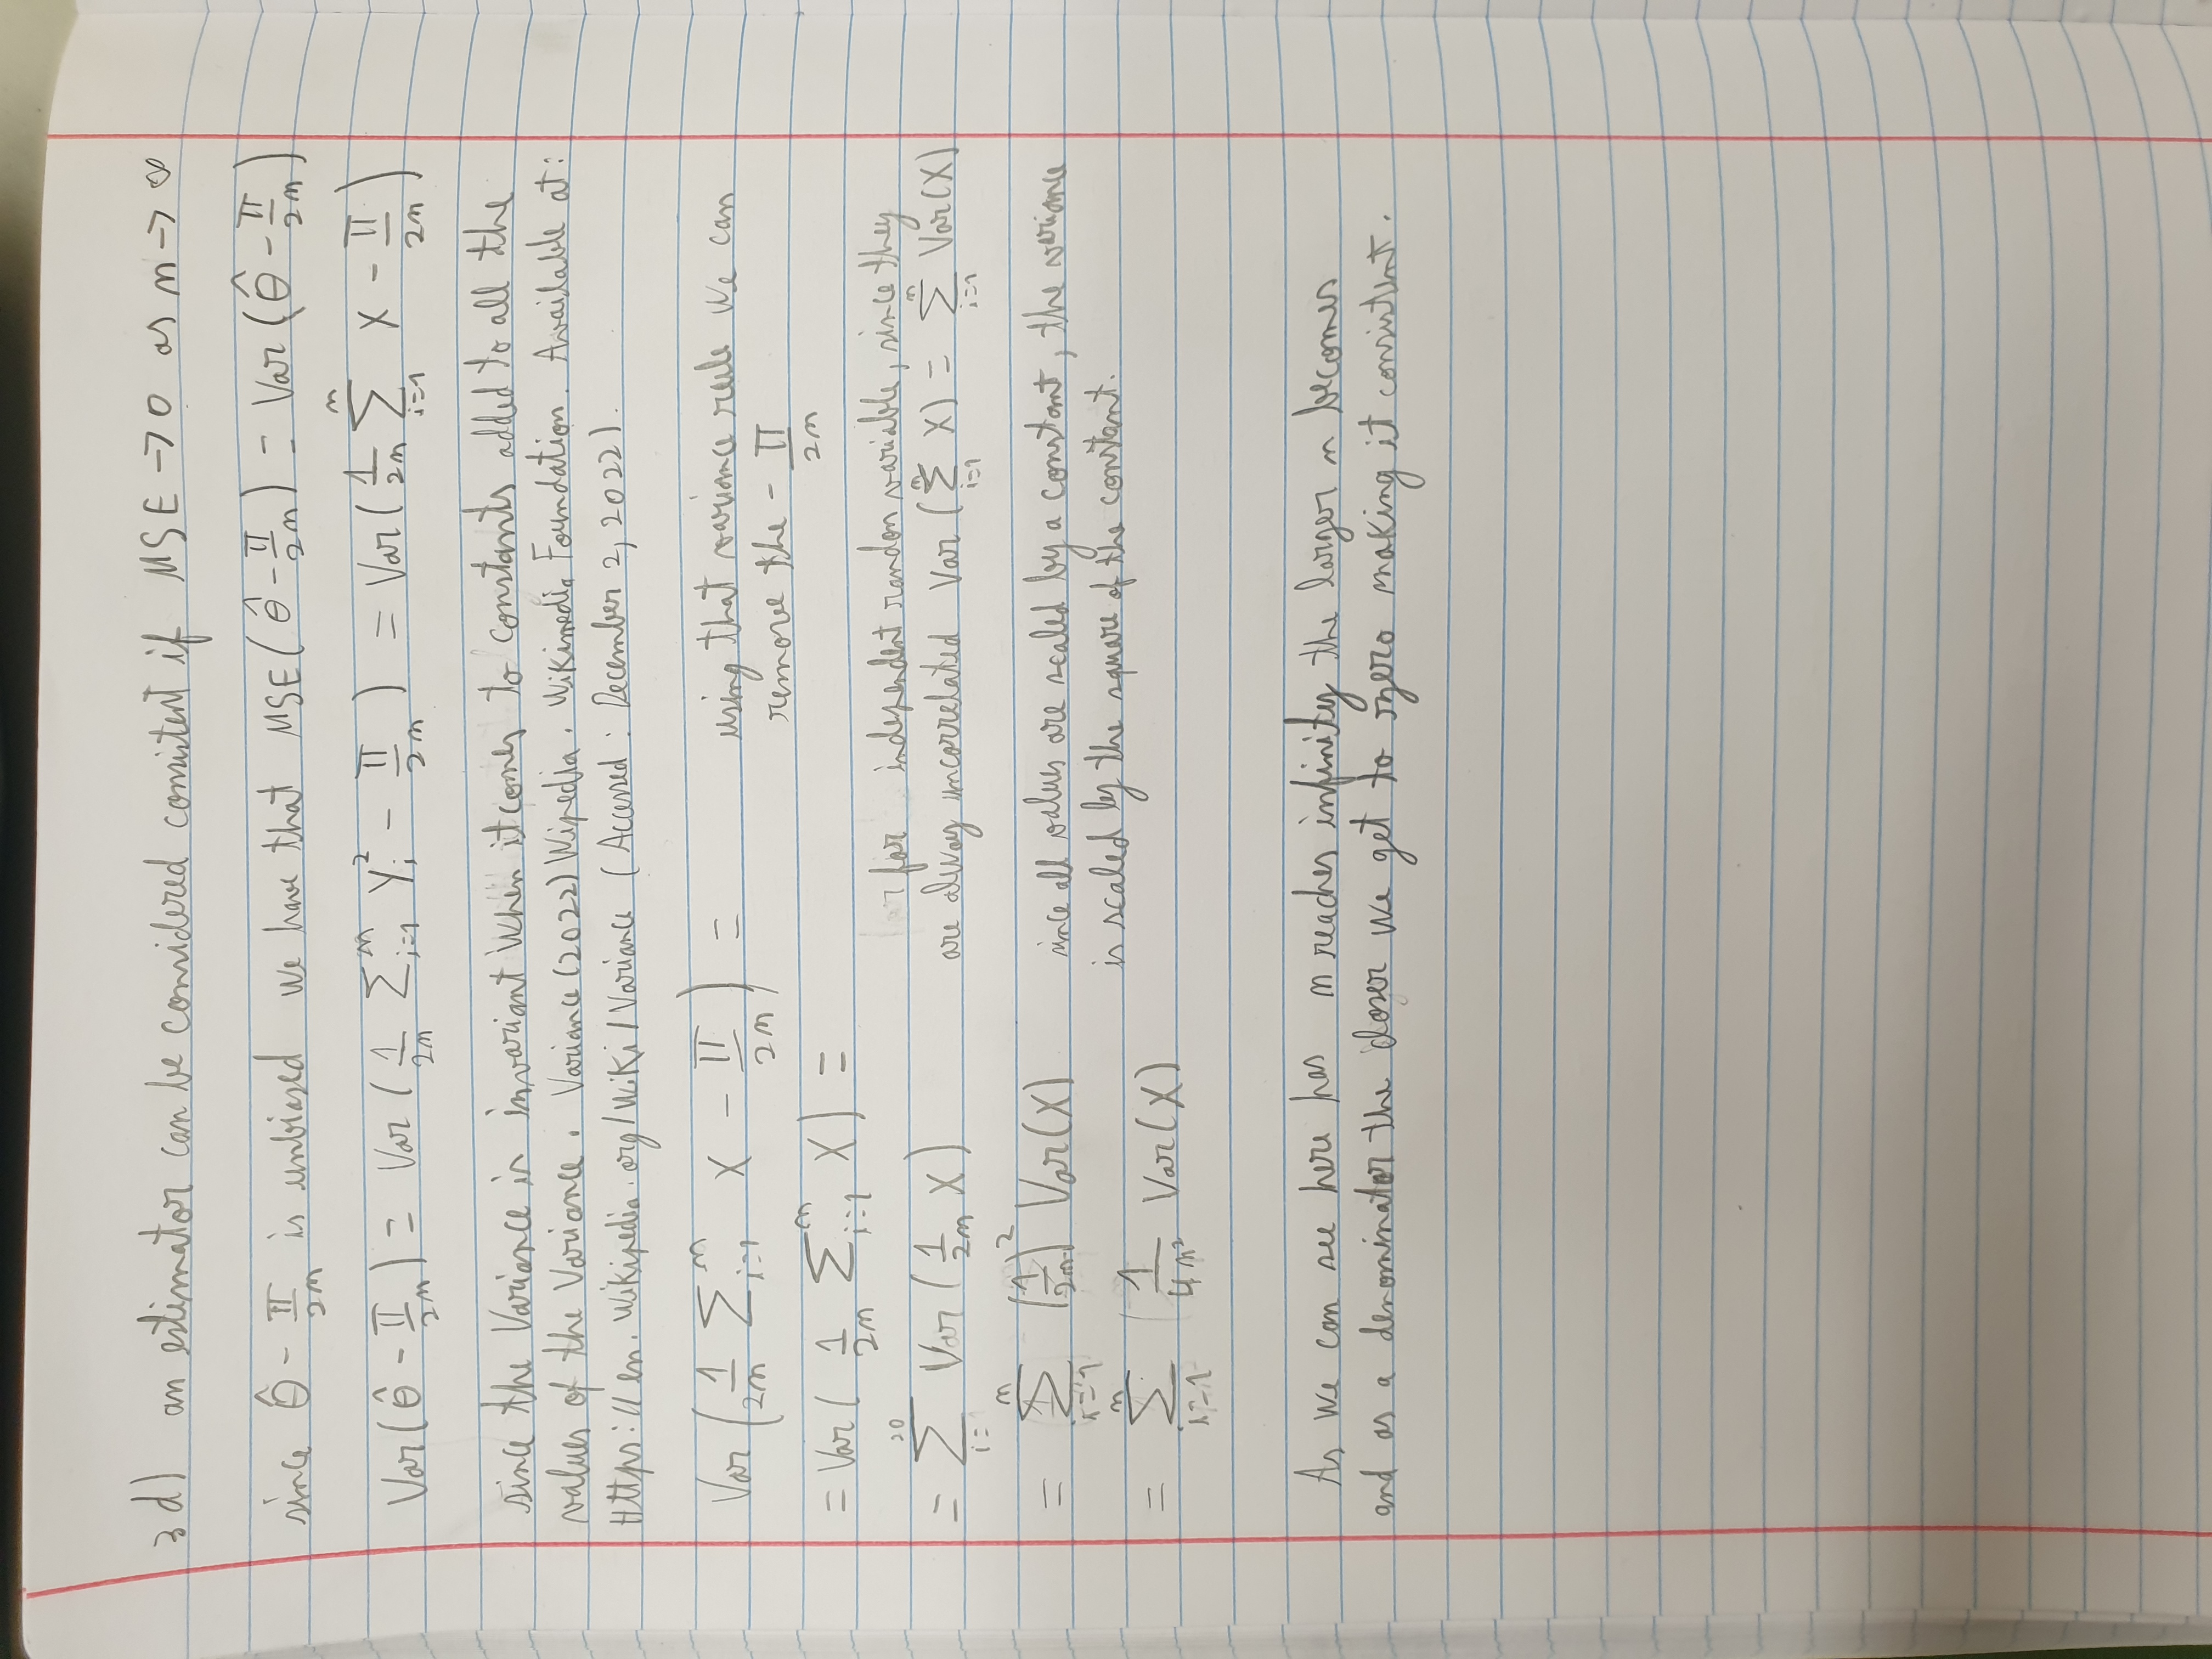 3 d) an estimator can be considered consistent if MSE → 0 as n → ∞
since θ̂ - π/2n is unbiased we have that MSE(θ̂ - π/2n) = Var(θ̂ - π/2n)
Var(θ̂ - π/2n) = Var(1/2n Σ_{i=1}^{n} Y_i^2 - π/2n) = Var(1/2n Σ_{i=1}^{n} X - π/2n)
since the Variance is invariant when it comes to constants added to all the
values of the Variance. Variance (2022) Wipedia. Wikimedia Foundation. Available at:
Https://en.wikipedia.org/wiki/Variance (Accessed: December 2, 2022).
Var(1/2n Σ_{i=1}^{n} X - π/2n) = using that variance rule we can
remove the - π/2n
= Var(1/2n Σ_{i=1}^{n} X) =
for independent random variable, since they
= Σ_{i=}^{20} Var(1/2n X) are alway uncorrelated Var(Σ_{i=1}^{n} X) = Σ_{i=1}^{n} Var(X)
= Σ_{i=1}^{n} (1/2n)^2 Var(X) since all values are scaled by a constant, the variance
is scaled by the square of the constant.
= Σ_{i=1}^{n} 1/4n² Var(X)
As we can see here has n reaches infinity the larger n becomes
and as a denominator the closer we get to zero making it consistent.